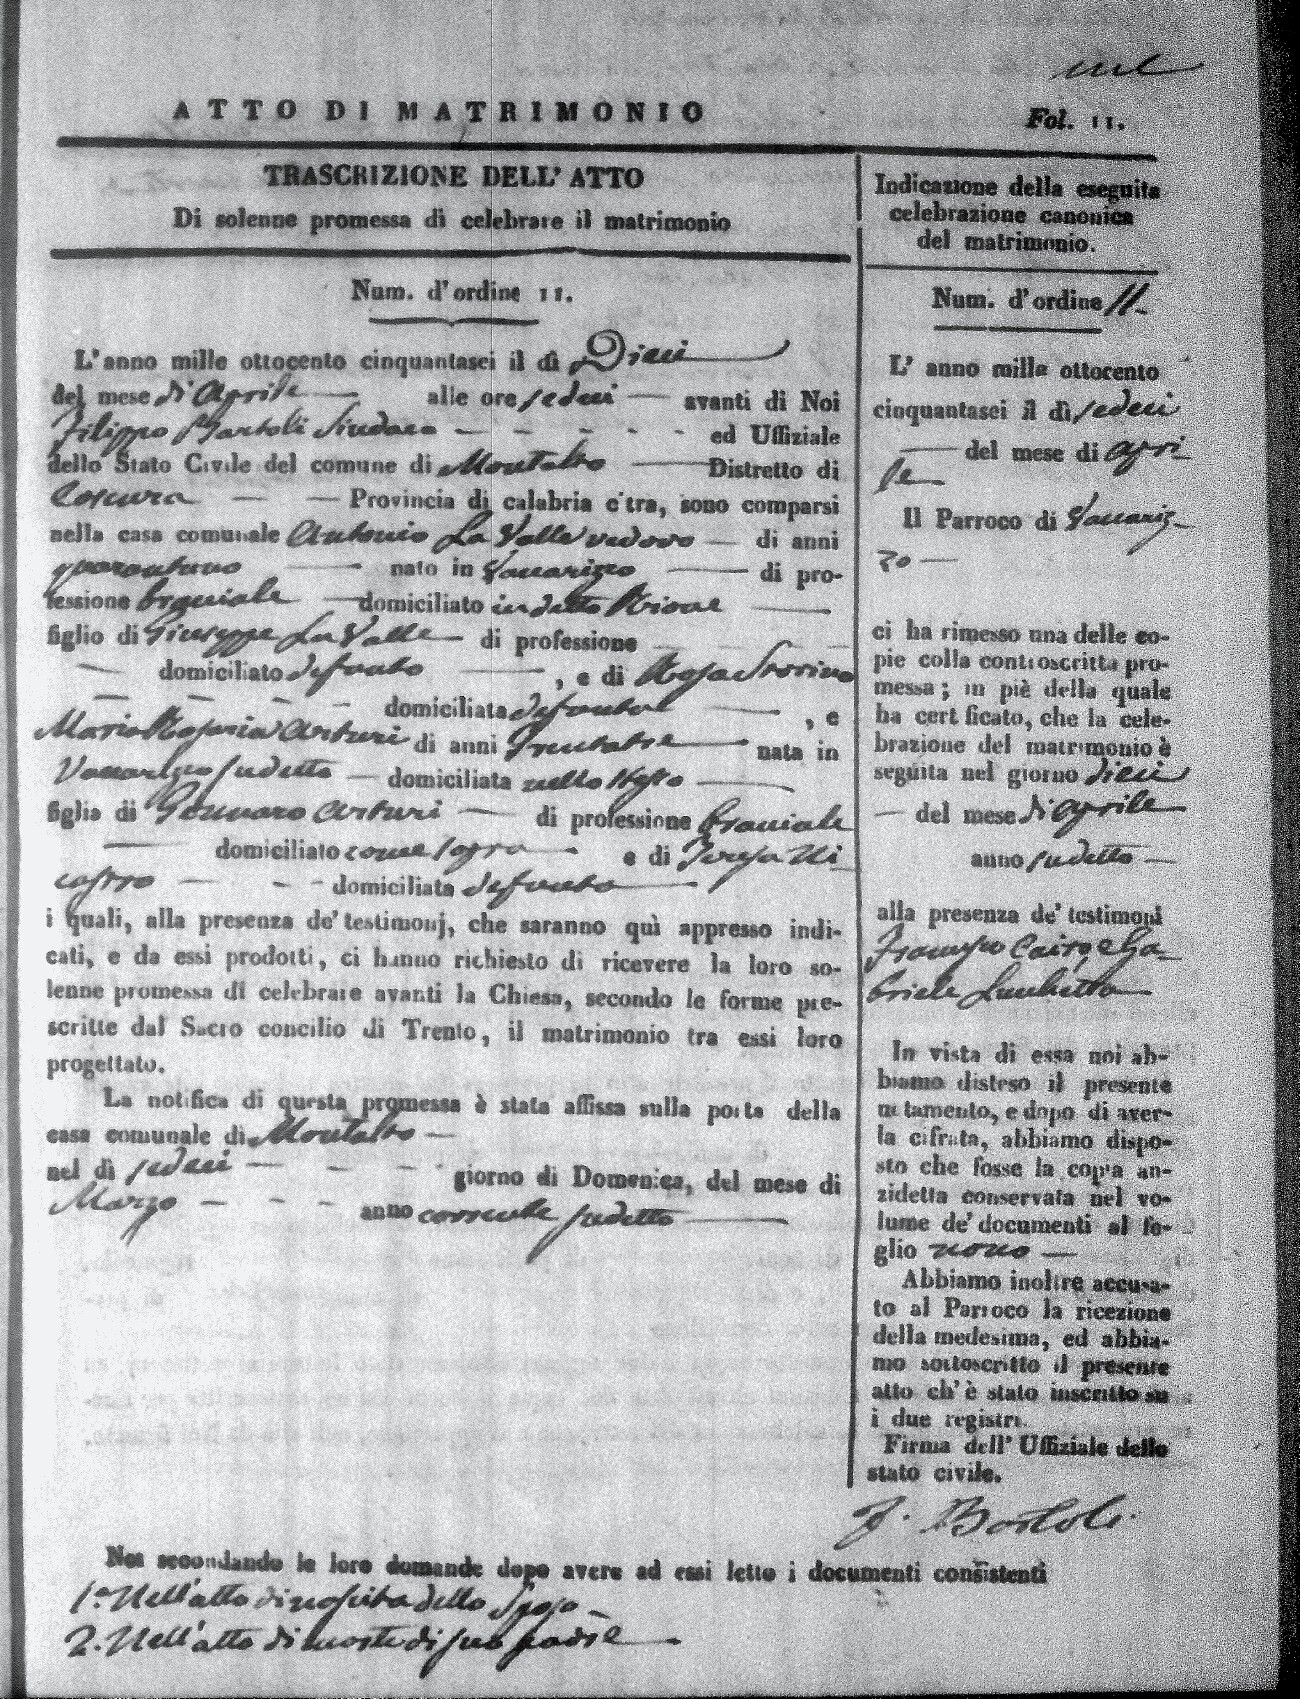 ATTO DI MATRIMONIO
Fol. 11.
TRASCRIZIONE DELL' ATTO
Di solenne promessa di celebrare il matrimonio
Num. d'ordine 11.
L'anno mille ottocento cinquantasei il dì Dieci
del mese di Aprile alle ore sedeci avanti di Noi
Filippo Bartoli Sindaco ed Uffiziale
dello Stato Civile del comune di Montalto Distretto di
Cosenza Provincia di calabria citra, sono comparsi
nella casa comunale Antonio La Valle vedovo di anni
quarantuno nato in Vaccarizzo di pro-
fessione braciale domiciliato in detto Rione
figlio di Giuseppe La Valle di professione
domiciliato defunto , e di Rosa
domiciliata defunta , e
Maria Rosaria Arturi di anni trentatre nata in
Vaccarizzo sudetto domiciliata nello stesso
figlia di Gennaro Arturi di professione braciale
domiciliato come sopra e di Teresa Ni
castro domiciliata defunta
i quali, alla presenza de' testimonj, che saranno quì appresso indi-
cati, e da essi prodotti, ci hanno richiesto di ricevere la loro so-
lenne promessa di celebrare avanti la Chiesa, secondo le forme pre-
scritte dal Sacro concilio di Trento, il matrimonio tra essi loro
progettato.
La notifica di questa promessa è stata affissa sulla porta della
casa comunale di Montalto
nel dì sedeci giorno di Domenica, del mese di
Marzo anno corrente sudetto
Indicazione della eseguita
celebrazione canonica
del matrimonio.
Num. d'ordine 11.
L' anno mille ottocento
cinquantasei il dì sedeci
del mese di apri
le
Il Parroco di Vaccariz
zo
ci ha rimesso una delle co-
pie colla controscritta pro-
messa; in piè della quale
ha certificato, che la cele-
brazione del matrimonio è
seguita nel giorno dieci
del mese di aprile
anno sudetto
alla presenza de' testimoni
e Ga
briele
In vista di essa noi ab-
biamo disteso il presente
notamento, e dopo di aver-
la cifrata, abbiamo dispo-
sto che fosse la copia an-
zidetta conservata nel vo-
lume de' documenti al fo-
glio nono
Abbiamo inoltre accusa-
to al Parroco la ricezione
della medesima, ed abbia-
mo sottoscritto il presente
atto ch'è stato inscritto su
i due registri.
Firma dell' Uffiziale dello
stato civile.
F. Bartoli
Noi secondando le loro domande dopo avere ad essi letto i documenti consistenti
1.° Nell'atto di nascita dello Sposo
2. Nell'atto di morte di suo padre